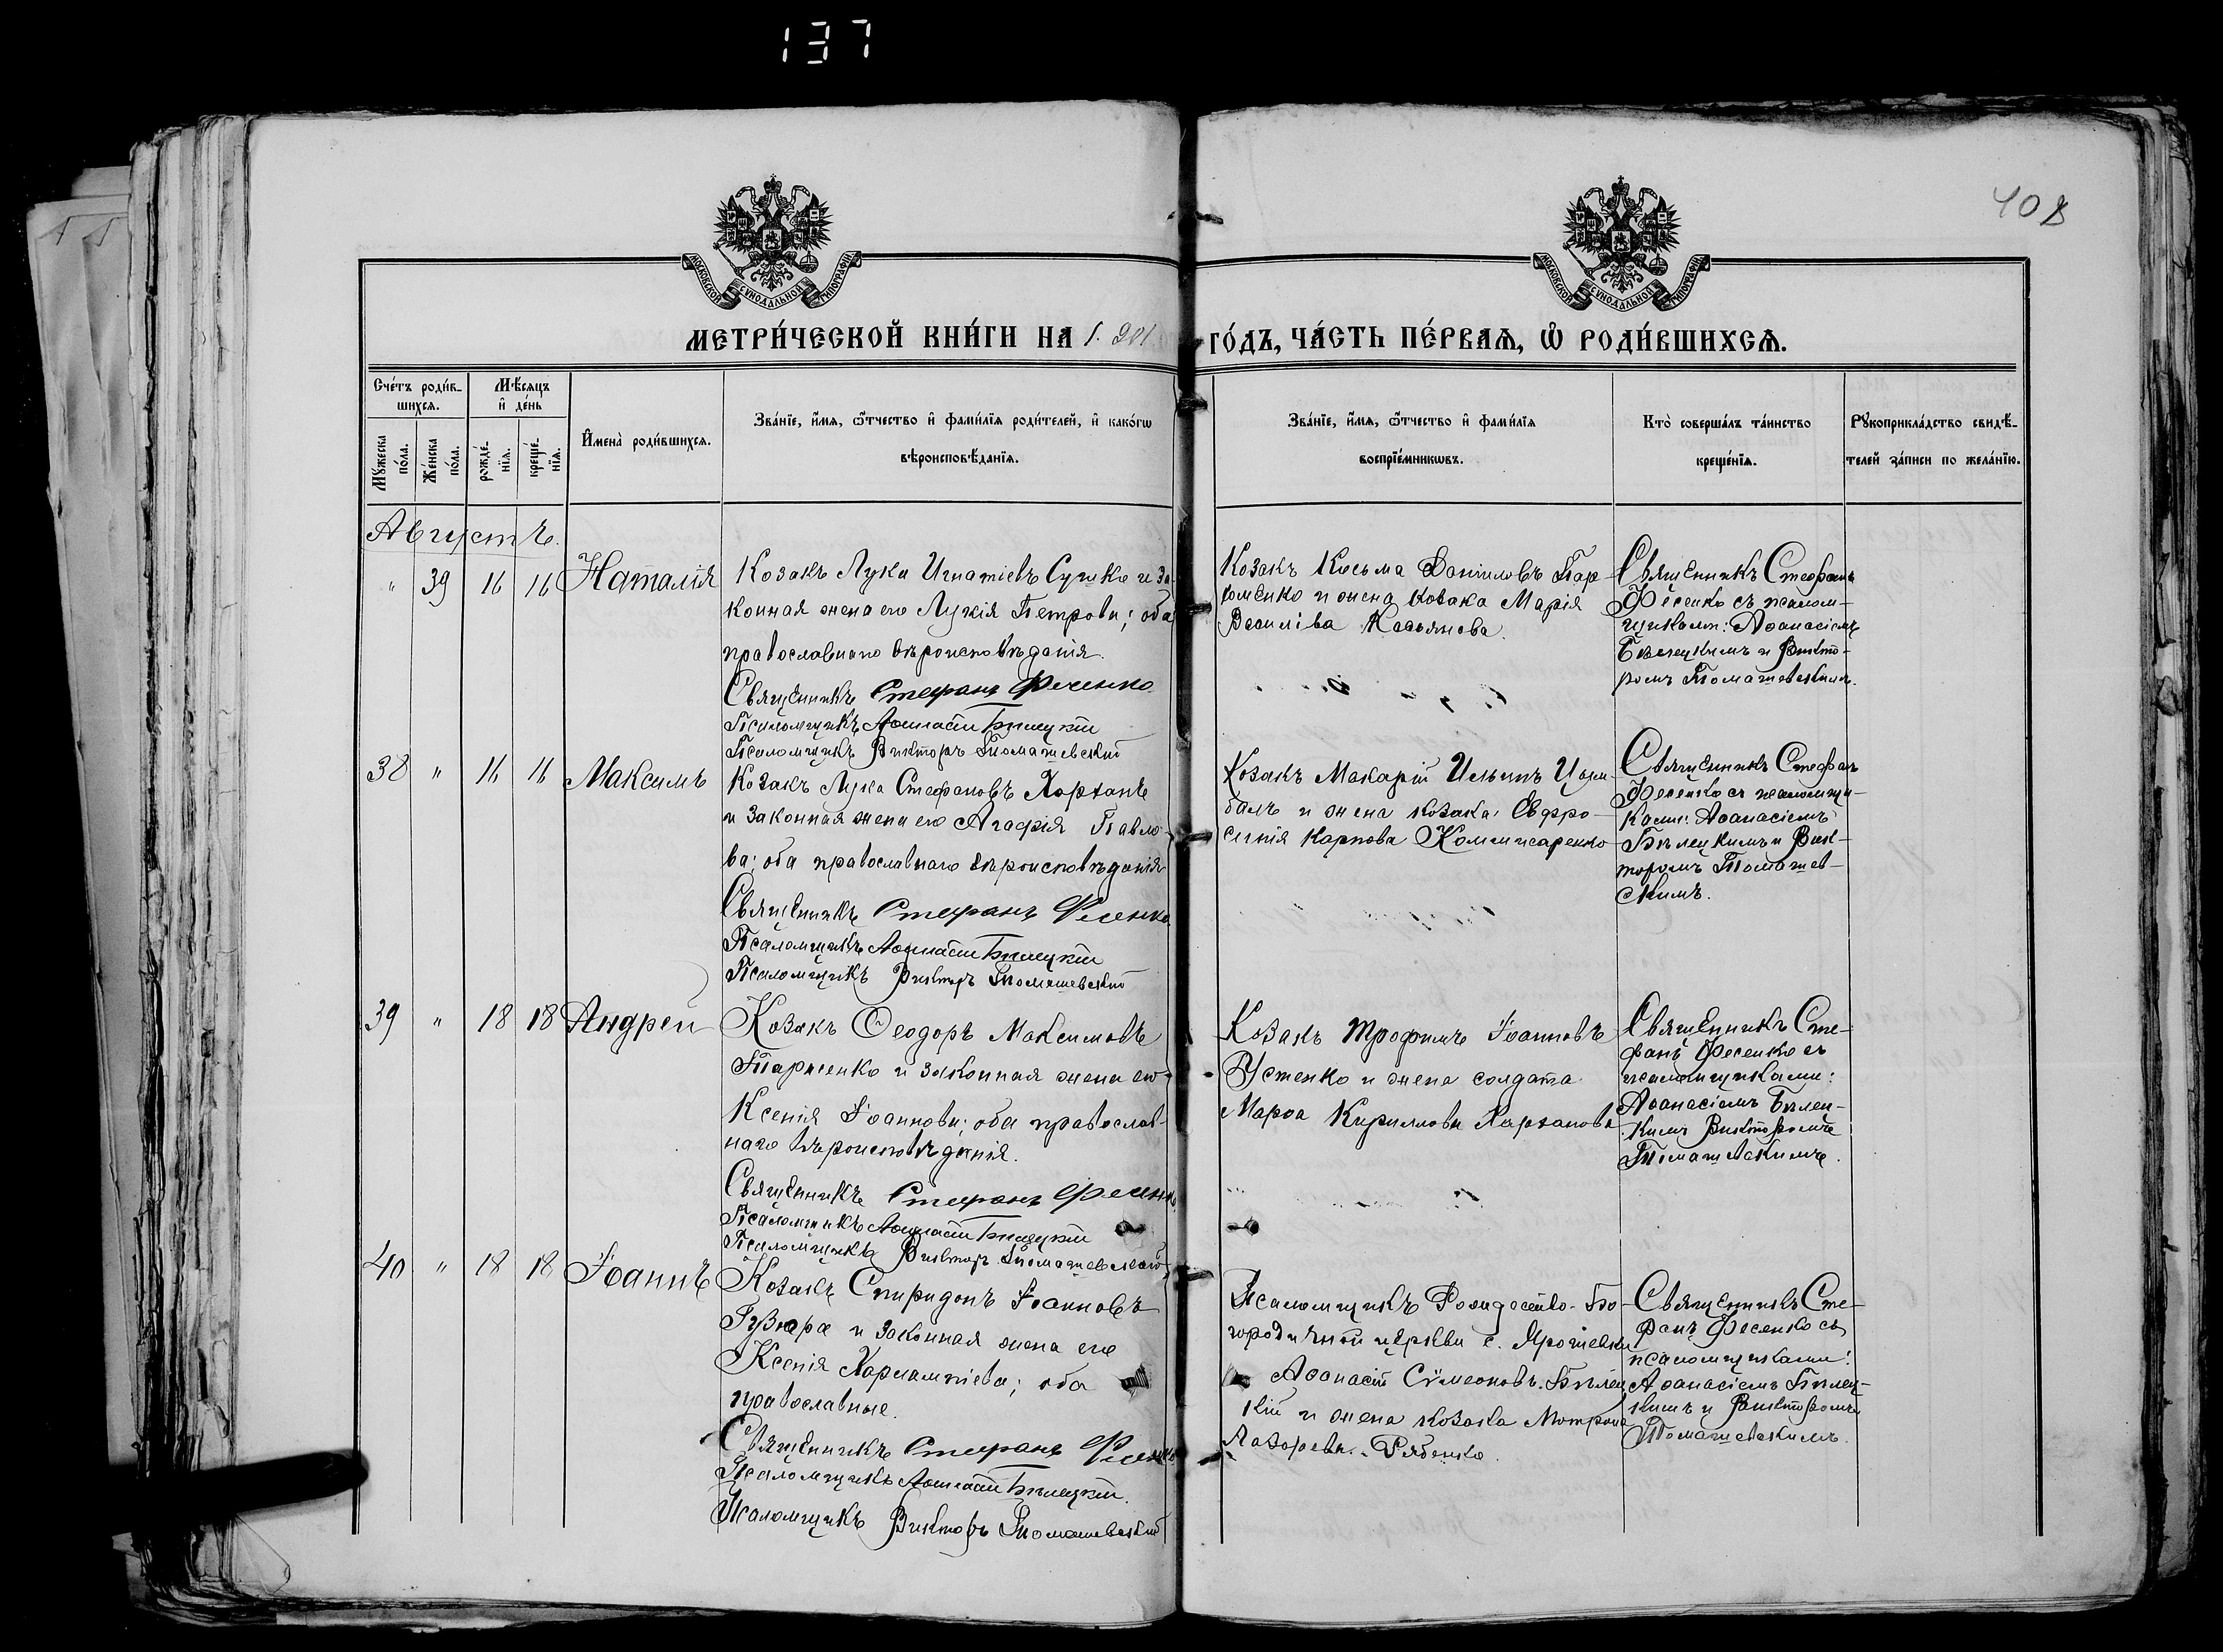 137
408
МОСКОВСКОЙ СУНОДАЛЬНОЙ ТИПОГРАФІИ
МОСКОВСКОЙ СУНОДАЛЬНОЙ ТИПОГРАФІИ
МЕТРИ́ЧЕСКОЙ КНИ́ГИ НА 1901 ГО́ДЪ, ЧА́СТЬ ПЕ́РВАѦ, Ѽ РОДИ́ВШИХСѦ.
Сче́тъ роди́в-
шихсѧ.
Мѣ́сѧцъ
и҆ де́нь
Мꙋжеска
по́ла.
Же́нска
по́ла.
рожде́-
нїѧ.
креще́-
нїѧ.
И҆мена̀ роди́вшихсѧ.
Зва́нїе, и҆́мѧ, ѻ҆́тчество и҆ фами́лїѧ роди́телей, и҆ како́гѡ
вѣроисповѣ́данїѧ.
Зва́нїе, и҆́мѧ, ѻ҆́тчество и҆ фами́лїѧ
воспрїе́мникѡвъ.
Кто̀ соверша́лъ та́инство
креще́нїѧ.
Рꙋкоприкла́дство свидѣ́-
телей за́писи по жела́нїю.
Августъ.
" 39 16 16 Наталія
Козакъ Лука Игнатіевъ Сушко и за-
конная жена его Лукія Петрова; оба
православнаго вѣроисповѣданія.
Священникъ Стефанъ Фесенко
Псаломщикъ Аѳанасій Бѣлецкій
Псаломщикъ Викторъ Томашевскій
Козакъ Косьма Даніиловъ Пар-
хоменко и жена козака Марія
Василіева Касьянова.
Священникъ Стефанъ
Фесенко съ псалом-
щиками: Аѳанасіемъ
Бѣлецкимъ и Викто-
ромъ Томашевскимъ.
38 " 16 16 Максимъ
Козакъ Лука Стефановъ Харханъ
и законная жена его Агафія Павло-
ва; оба православнаго вѣроисповѣданія
Священникъ Стефанъ Фесенко
Псаломщикъ Аѳанасій Бѣлецкій
Псаломщикъ Викторъ Томашевскій
Козакъ Макарій Ильинъ Цым-
балъ и жена козака Евфро-
синія Карпова Коммисаренко
Священникъ Стефанъ
Фесенко съ псаломщи-
ками: Аѳанасіемъ
Бѣлецкимъ и Вик-
торомъ Томашев-
скимъ.
39 " 18 18 Андрей
Козакъ Ѳеодоръ Максимовъ
и законная жена его
Ксенія Іоаннова; оба православ-
наго вѣроисповѣданія.
Священникъ Стефанъ Фесенко
Псаломщикъ Аѳанасій Бѣлецкій
Псаломщикъ Викторъ Томашевскій
Козакъ Трофимъ Іоанновъ
Устенко и жена солдата
Марѳа Кириллова Харханова
Священникъ Сте-
фанъ Фесенко съ
псаломщиками:
Аѳанасіемъ Бѣлец-
кимъ Викторомъ
Томашевскимъ.
40 " 18 18 Іоаннъ
Козакъ Спиридонъ Іоанновъ
и законная жена его
Ксенія Харлампіева; оба
православные.
Священникъ Стефанъ Фесенко
Псаломщикъ Аѳанасій Бѣлецкій.
Псаломщикъ Викторъ Томашевскій
Псаломщикъ Рождество-Бо-
городичной церкви с. Ярошевки
Аѳанасій Сѵмеоновъ Бѣлец-
кій и жена козака Мотрона
Лазорева Рябенко.
Священникъ Сте-
фанъ Фесенко съ
псаломщиками:
Аѳанасіемъ Бѣлец-
кимъ и Викторомъ
Томашевскимъ.